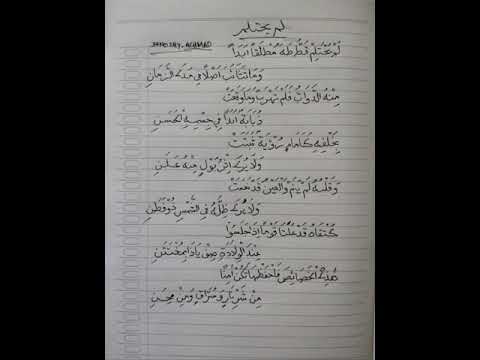 لم يحتلم
JANOSKY. ACHMAD
لَمْ يَحْتَلِمْ قَطُّ طٰهَ مُطْلَقًا اَبَدًا
وَمَا تَثَائَبَ اَصْلًا فِى مَدَى الزَّمَانِ
مِنْهُ الدَّوَابُّ فَلَمْ تَهْرَبْ وَمَا وَقَعَتْ
ذُبَابَةٌ اَبَدًا فِى جِسْمِهِ الْحَسَنِ
بِخَلْفِهِ كَاَمَامٍ رُؤْيَةٌ ثَبَتَتْ
وَلَا يُرَى اِثْرُ بَوْلٍ مِنْهُ عَلَنِ
وَقَلْبُهُ لَمْ يَنَمْ وَالْعَيْنُ قَدْ نَعَسَتْ
وَلَا يَرَى ظِلَّهُ فِى الشَّمْسِ ذُوْ فَطِنِ
كَتْفَاهُ قَدْ عَلَتَا قَوْمًا اِذَا جَلَسُوْا
عِنْدَ الْوِلَادَةِ صِفْ يَا ذَا بِمُخْتَتَنِ
هٰذِهِ الْخَصَائِصَ فَاحْفَظْهَا تَكُنْ اٰمِنًا
مِنْ شَرِّ نَارٍ وَسُرَّاقٍ وَمِنْ مِحَنِ